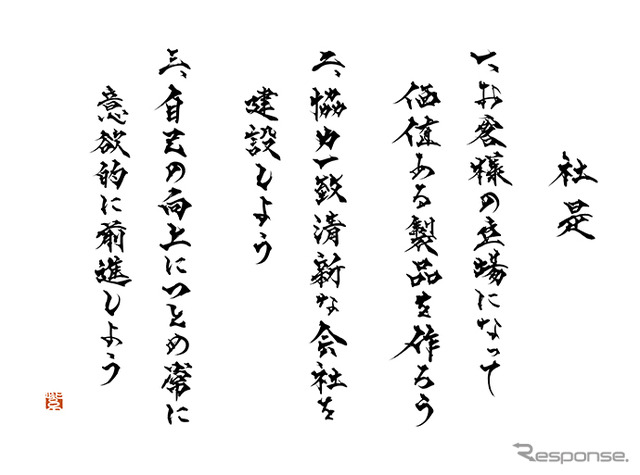 社是
一、お客様の立場になって
価値ある製品を作ろう
二、協力一致清新な会社を
建設しよう
三、自己の向上につとめ常に
意欲的に前進しよう
Response.